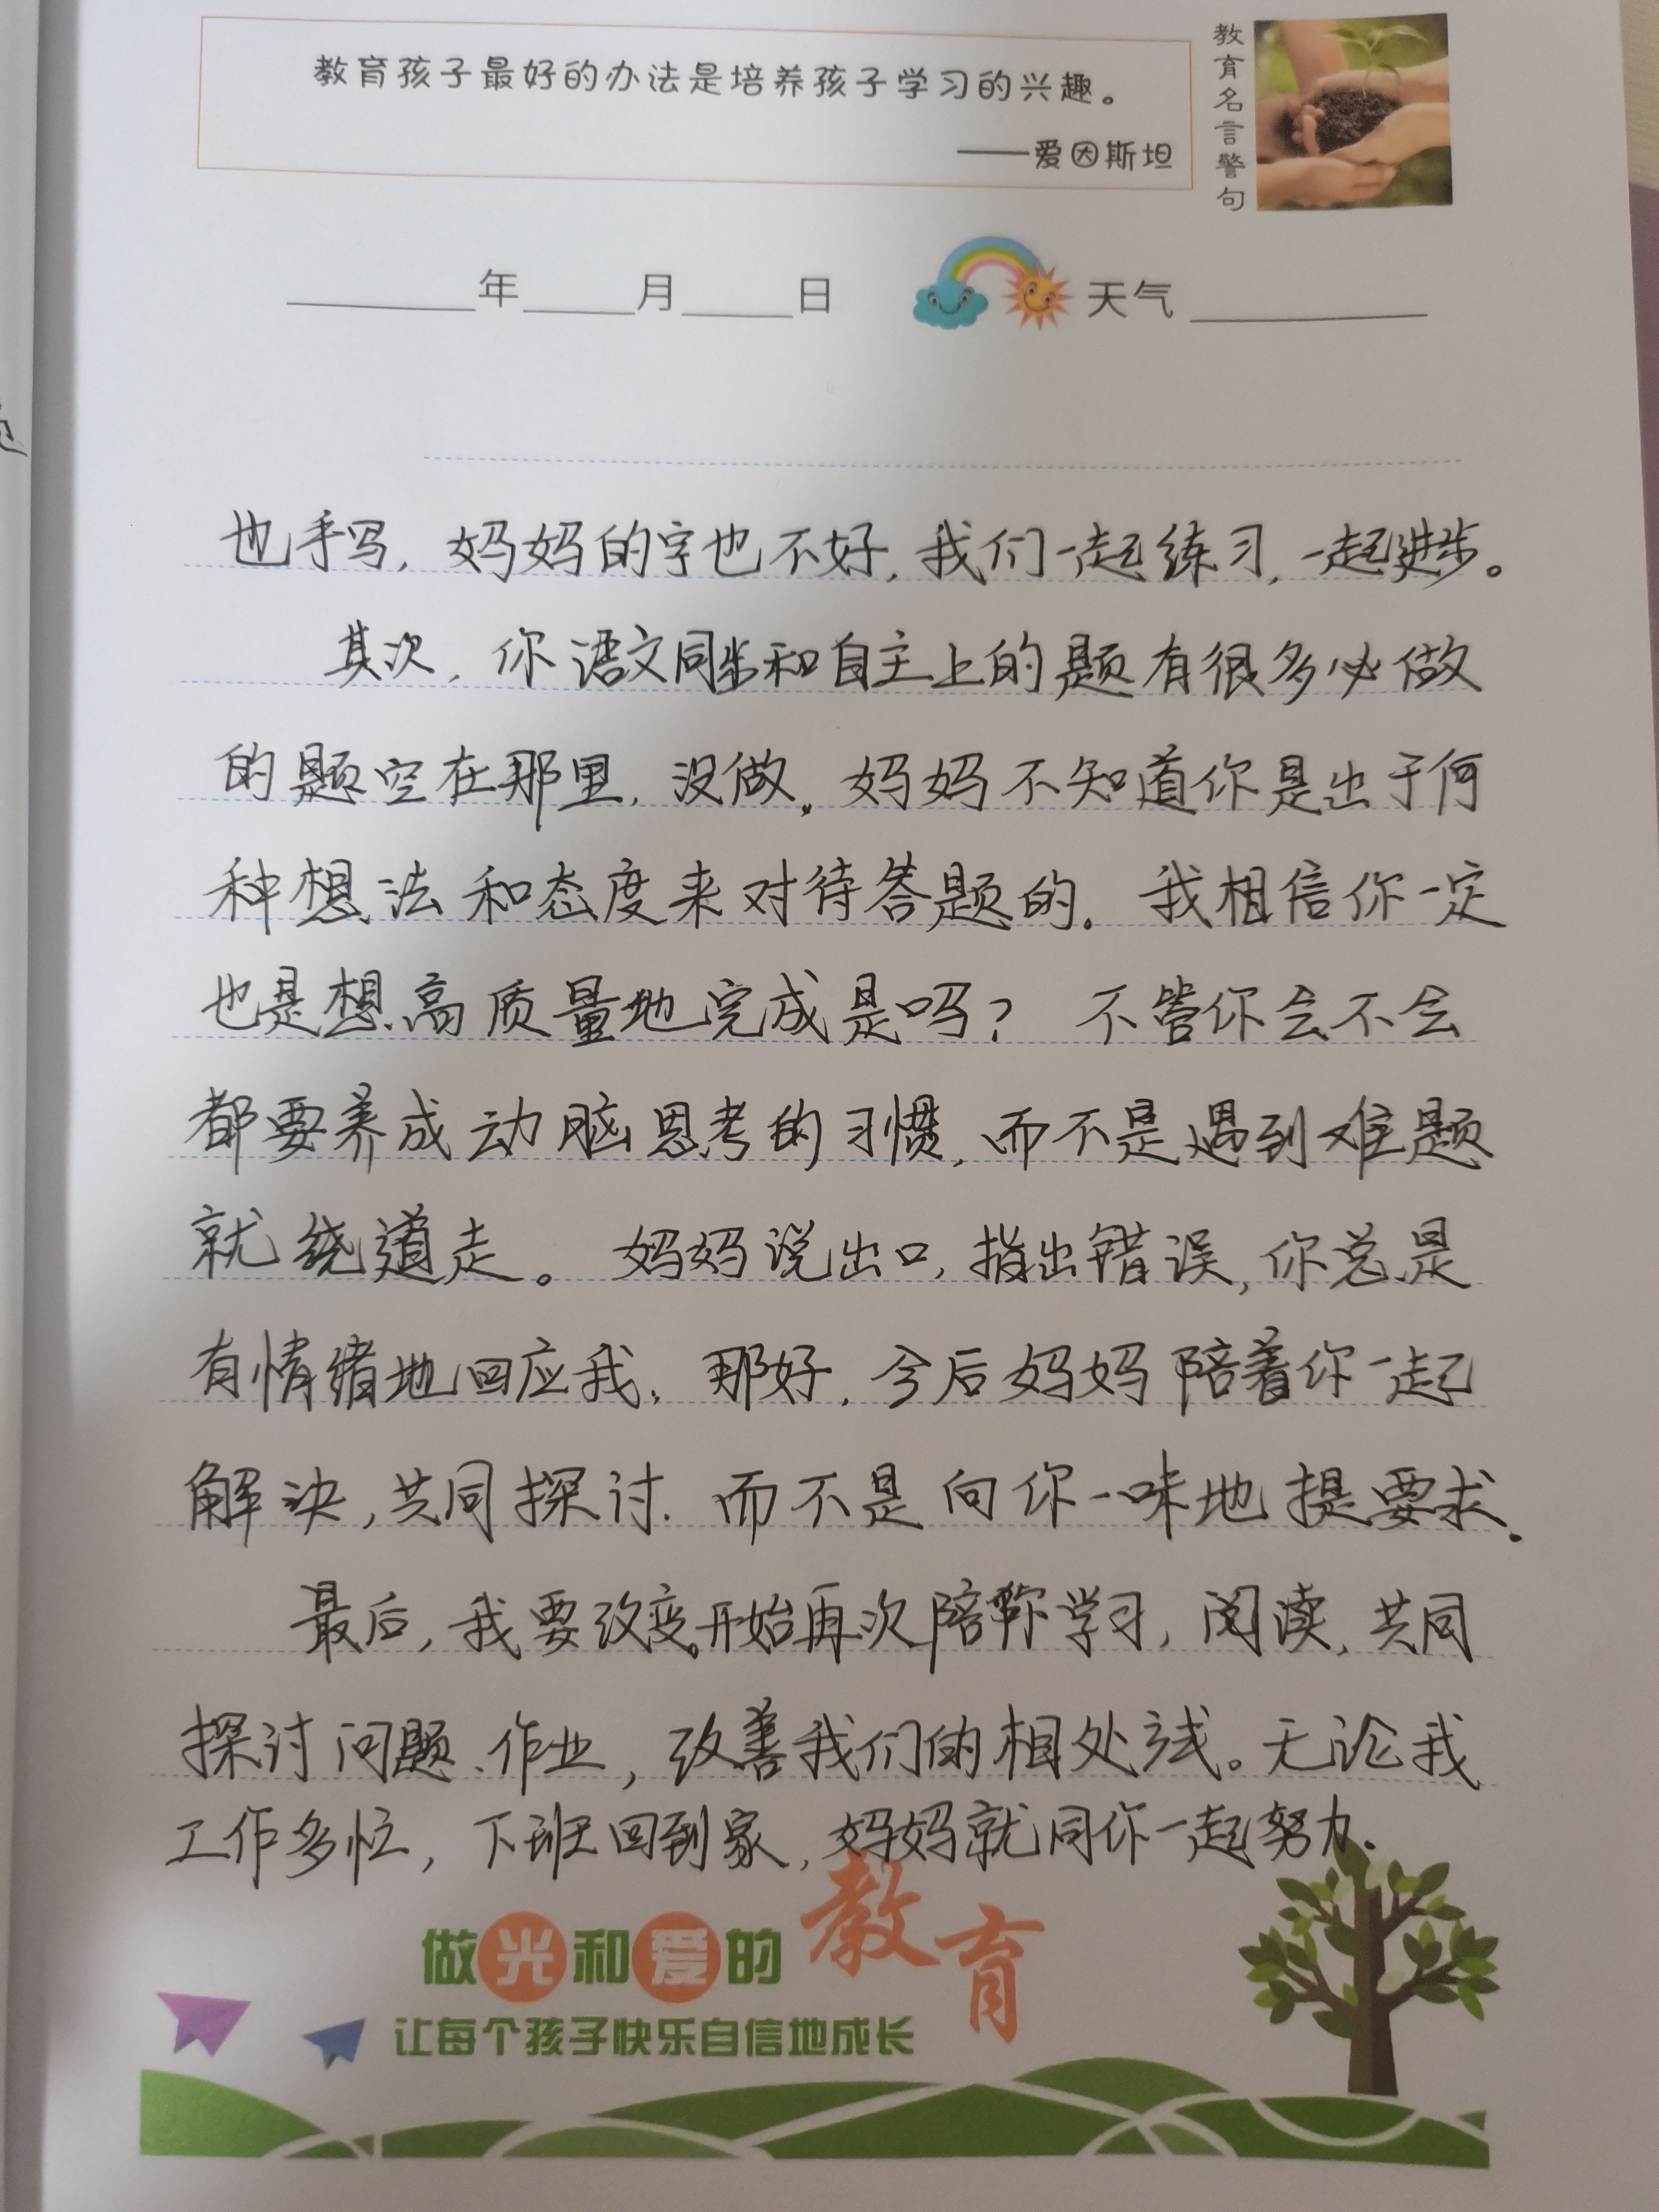 教育孩子最好的办法是培养孩子学习的兴趣。
——爱因斯坦
教育名言警句
年 月 日 天气
也手写，妈妈的字也不好，我们一起练习，一起进步。
其次，你语文同步和自主上的题有很多必做
的题空在那里，没做。妈妈不知道你是出于何
种想法和态度来对待答题的。我相信你一定
也是想高质量地完成是吗？不管你会不会
都要养成动脑思考的习惯，而不是遇到难题
就绕道走。妈妈说出口，指出错误，你总是
有情绪地回应我。那好，今后妈妈陪着你一起
解决，共同探讨．而不是向你一味地提要求．
最后，我要改变。开始再次陪你学习，阅读，共同
探讨问题、作业，改善我们的相处方式。无论我
工作多忙，下班回到家，妈妈就同你一起努力．
做光和爱的教育
让每个孩子快乐自信地成长